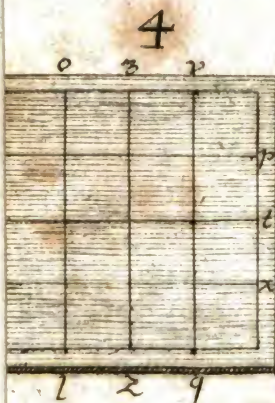 4
o 3 r
p
t
x
l 2 q